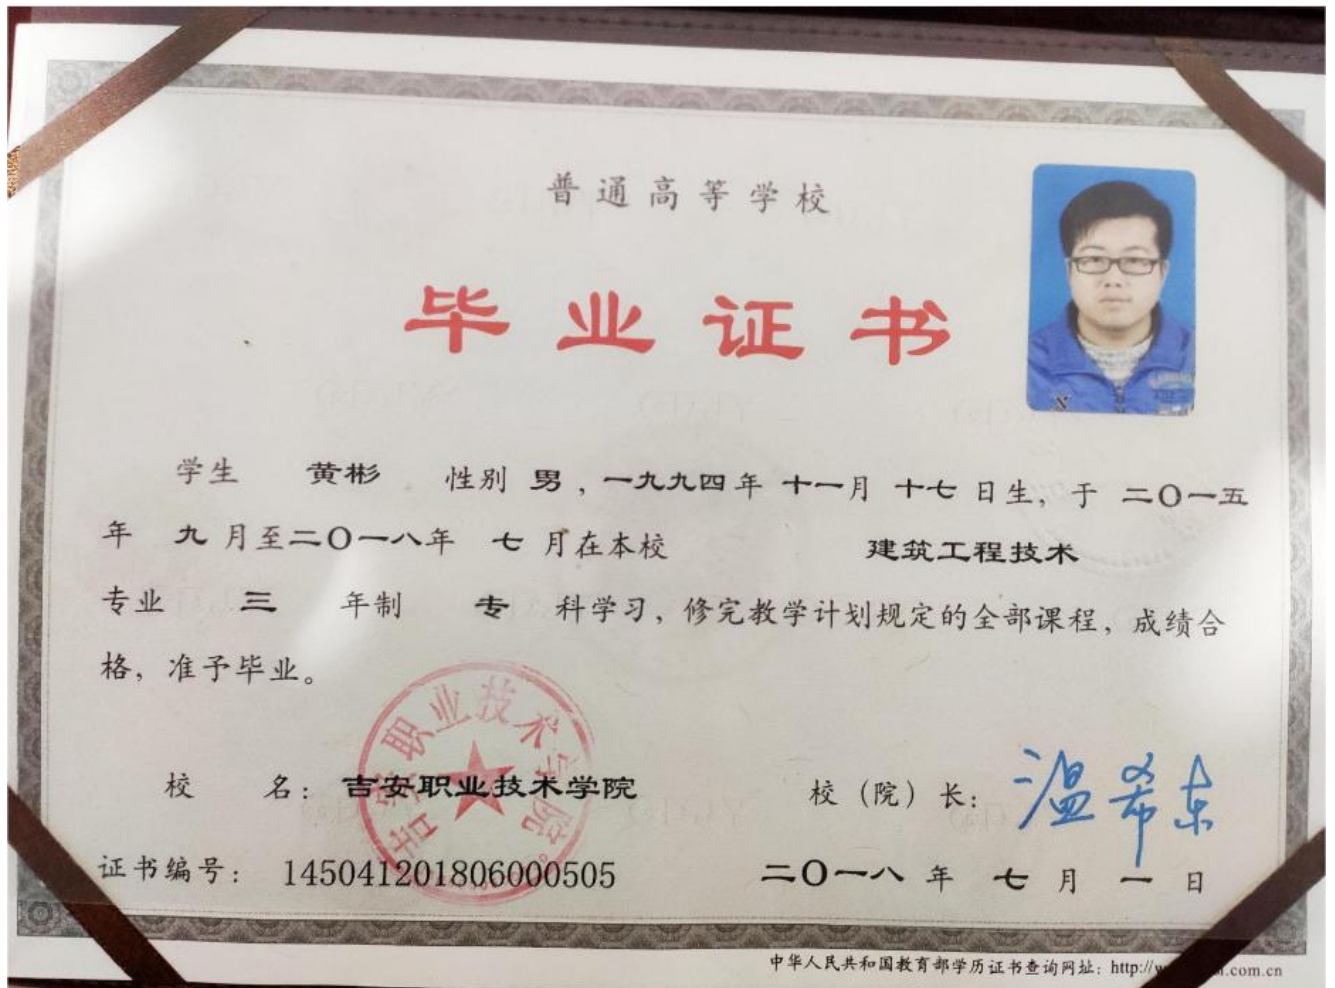 普通高等学校
毕业证书
学生 黄彬 性别 男，一九九四年 十一月 十七 日生，于 二〇一五
年 九 月至二〇一八年 七 月在本校 建筑工程技术
专业 三 年制 专 科学习，修完教学计划规定的全部课程，成绩合
格，准予毕业。
吉安职业技术学院
校 名：吉安职业技术学院 校（院）长：温希东
证书编号：145041201806000505 二〇一八 年 七 月 一 日
中华人民共和国教育部学历证书查询网址：http://w .com.cn